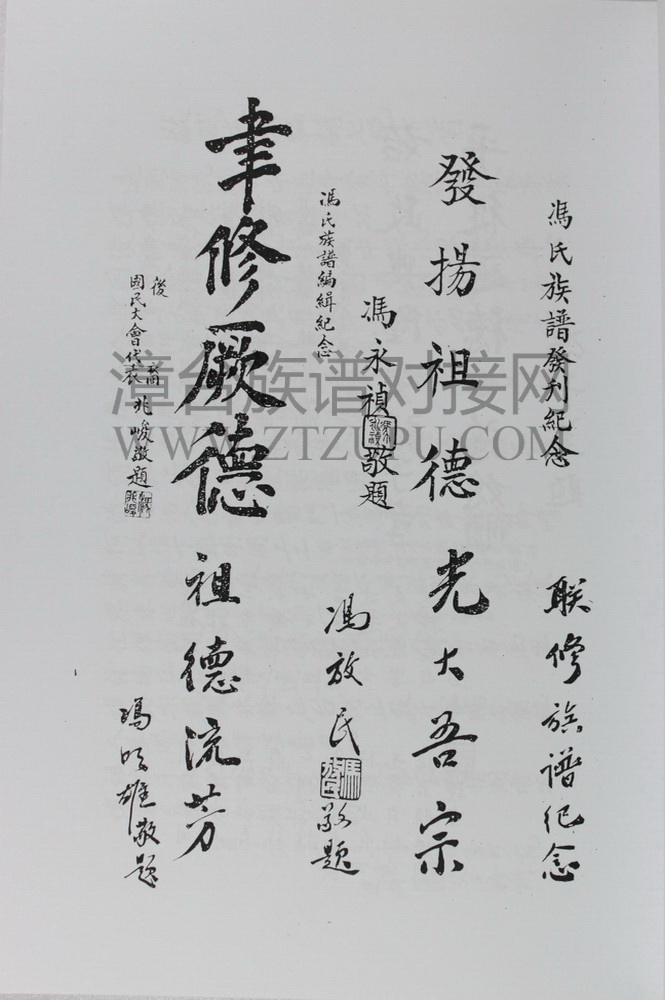 馮氏族譜發刊紀念
發揚祖德
馮永禎敬題
联修族谱纪念
光大吾宗
馮放民敬题
馮氏族譜編緝紀念
聿修厥德
國民大會代表
後裔兆峻敬題
祖德流芳
馮雄敬题
漳台族谱对接网
WWW.ZTZUPU.COM